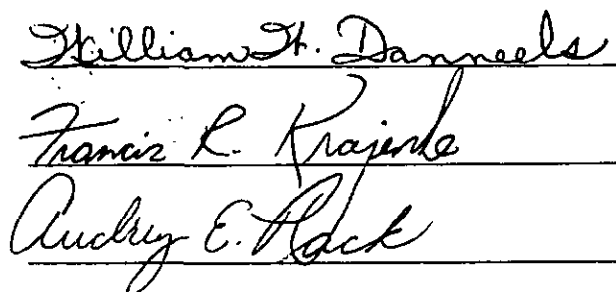 William H. Danneels
Francis R. Krajenke
Audrey E. Plack